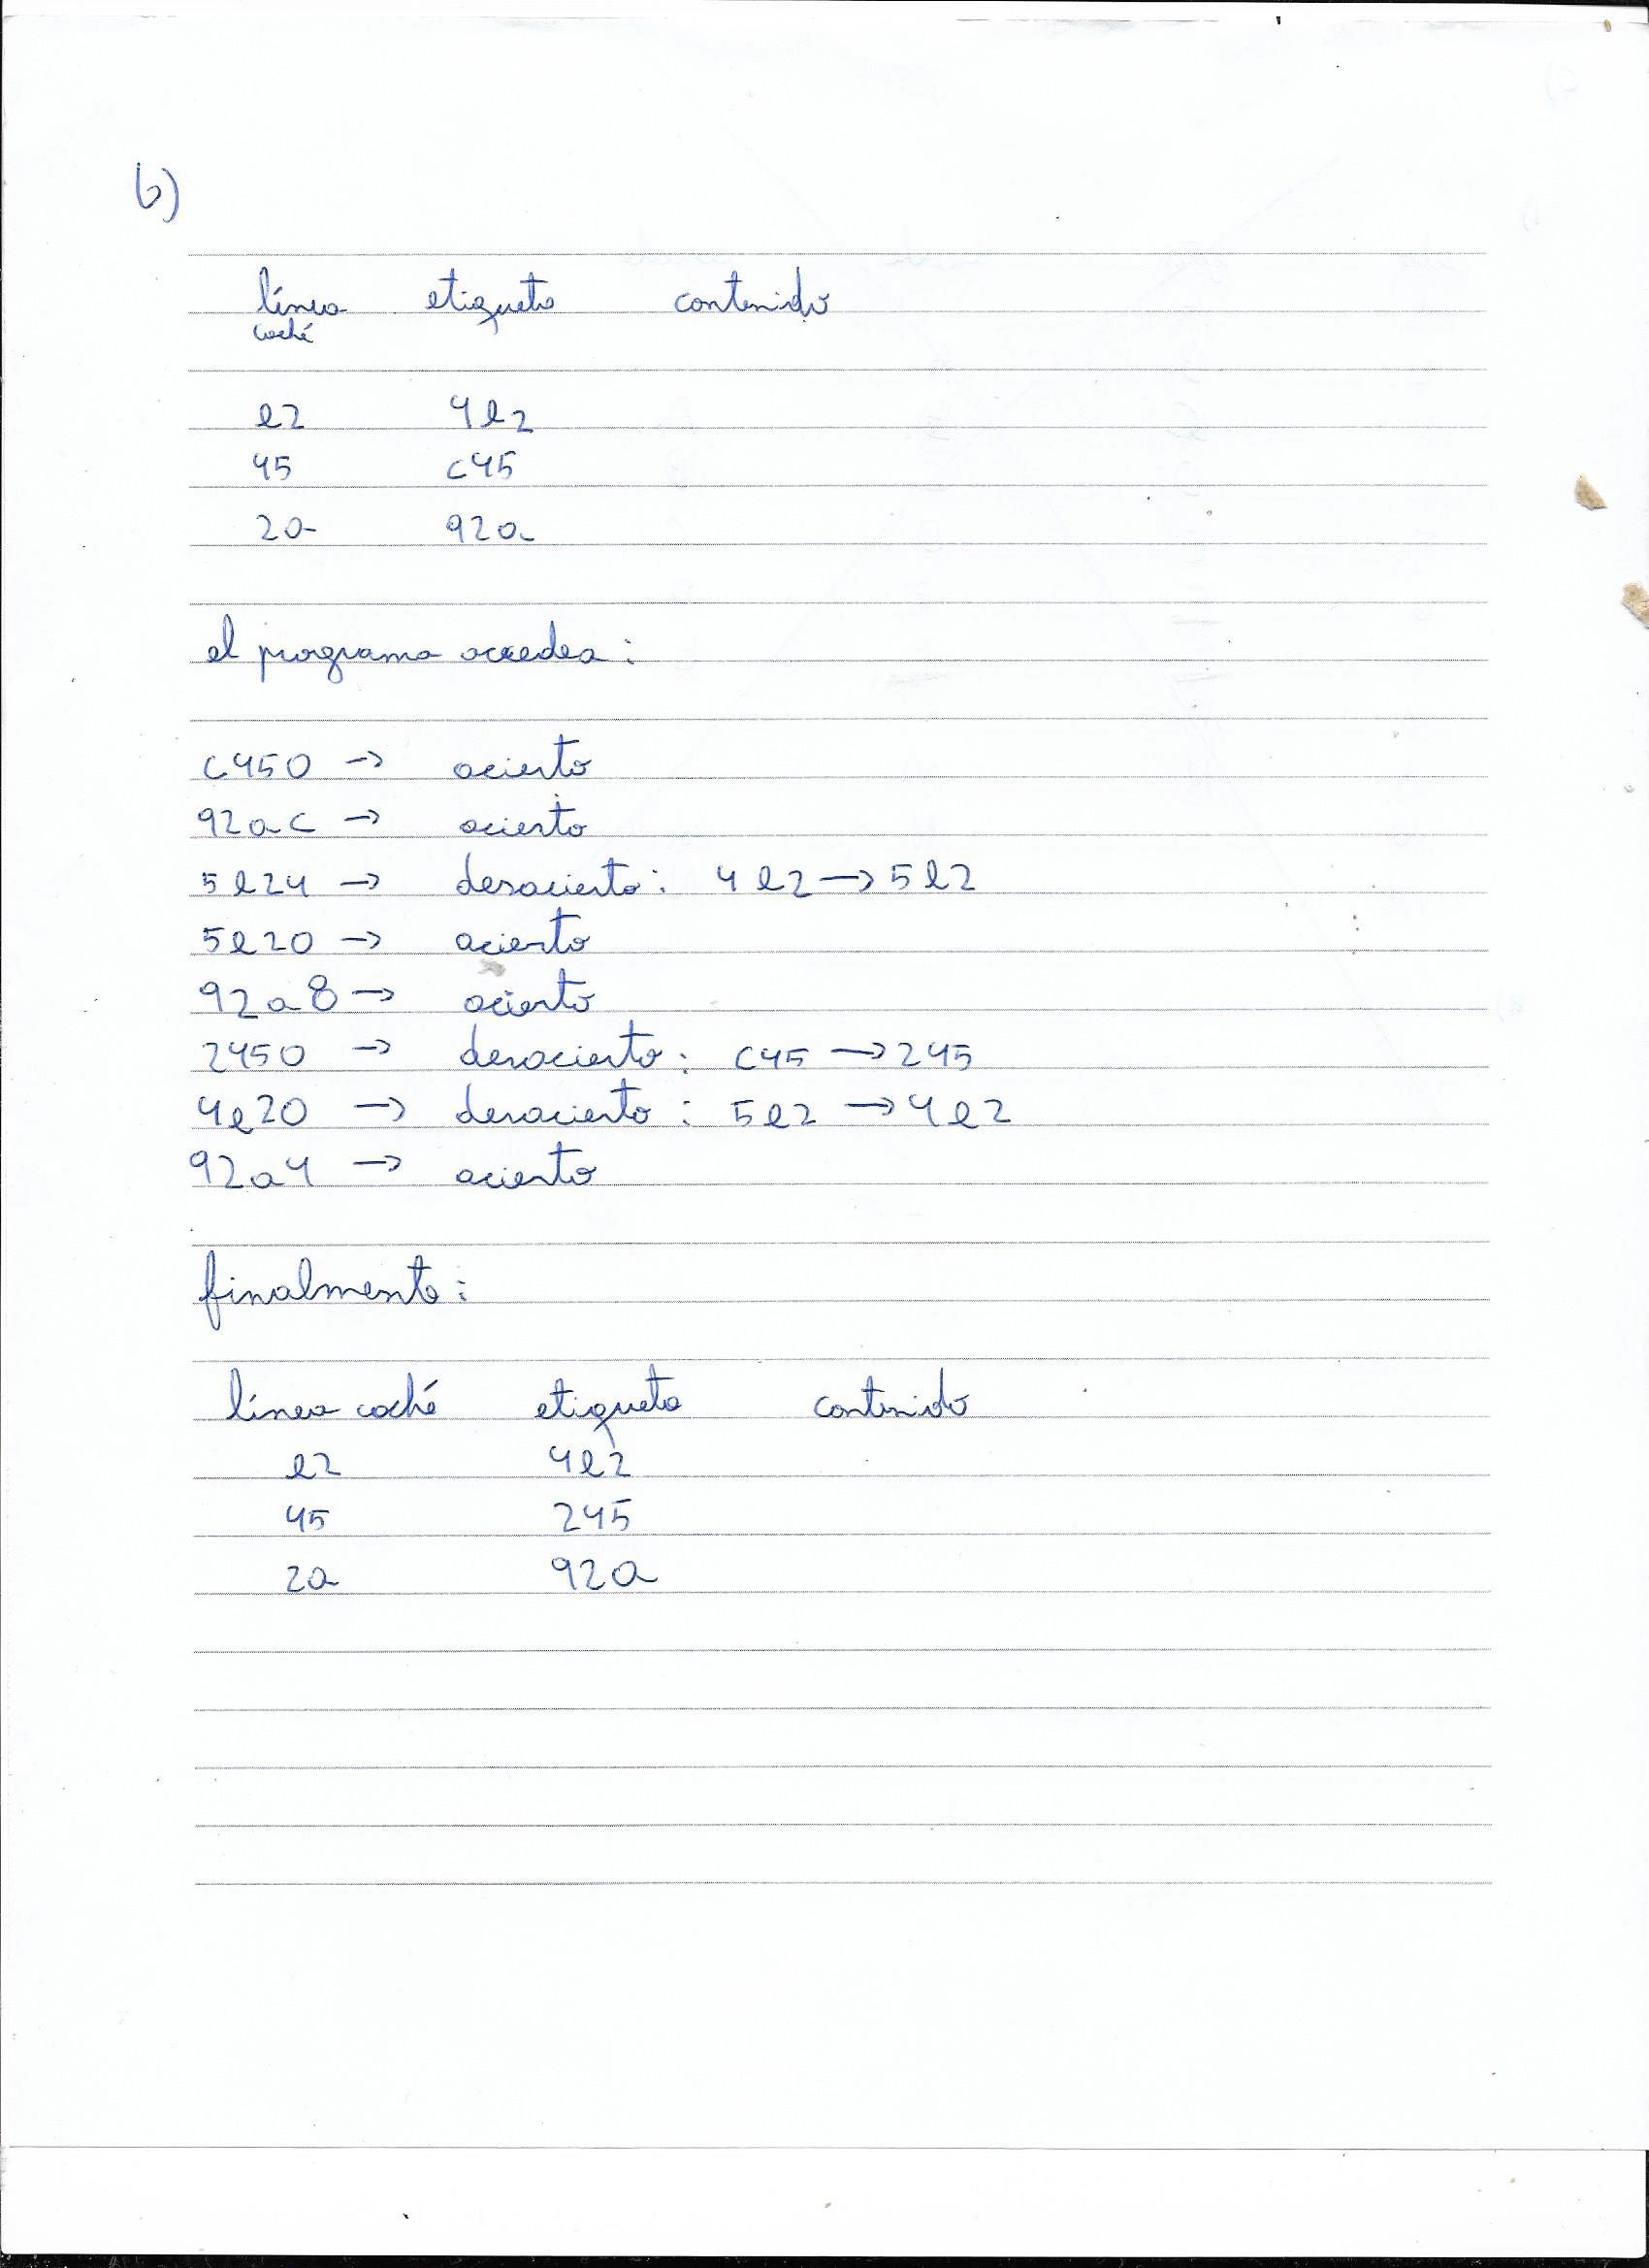 b)
línea etiqueta contenido
caché
e2 4e2
45 c45
2a 92a
el programa accede a:
c450 → acierto
92ac → acierto
5e24 → desacierto: 4e2 → 5e2
5e20 → acierto
92a8 → acierto
2450 → desacierto: c45 → 245
4e20 → desacierto: 5e2 → 4e2
92a4 → acierto
finalmente:
línea caché etiqueta contenido
e2 4e2
45 245
2a 92a